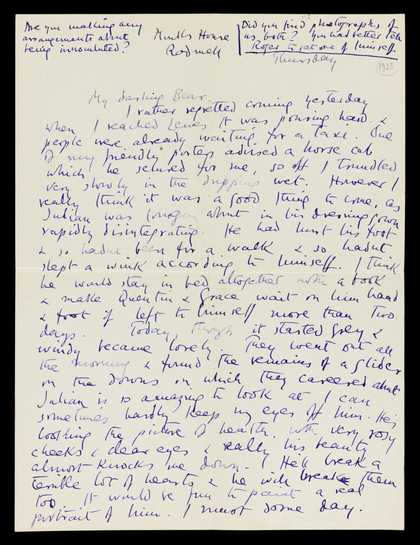 Are you making any
arrangements about
being innoculated?
Monks House
Rodmell
Did you find photographs of
us both? You had better tell
Roger to get one of himself.
Thursday
My darling Bear
I rather regretted coming yesterday
when I reached Lewes it was pouring hard &
people were already waiting for a taxi. One
of my friendly porters advised a horse cab
which he secured for me, so off I trundled
very slowly in the dripping wet. However I
really think it was a good thing to come, as
Julian was about in his dressing gown
rapidly disintegrating. He had hurt his foot
& so hadn't been for a walk & so hadn't
slept a wink according to himself. I think
he would stay in bed altogether with a book
& make Quentin & Grace wait on him hand
& foot if left to himself more than two
days. Today, though it started grey &
windy became lovely. They went out all
the morning & found the remains of a glider
on the Downs in which they careered about
Julian is so amazing to look at I can
sometimes hardly keep my eyes off him. He's
looking the picture of health, with very rosy
cheeks & clear eyes & really his beauty
almost knocks me down. He'll break a
terrible lot of hearts & he will break them
too It would be fun to paint a real
portrait of him. I must some day.